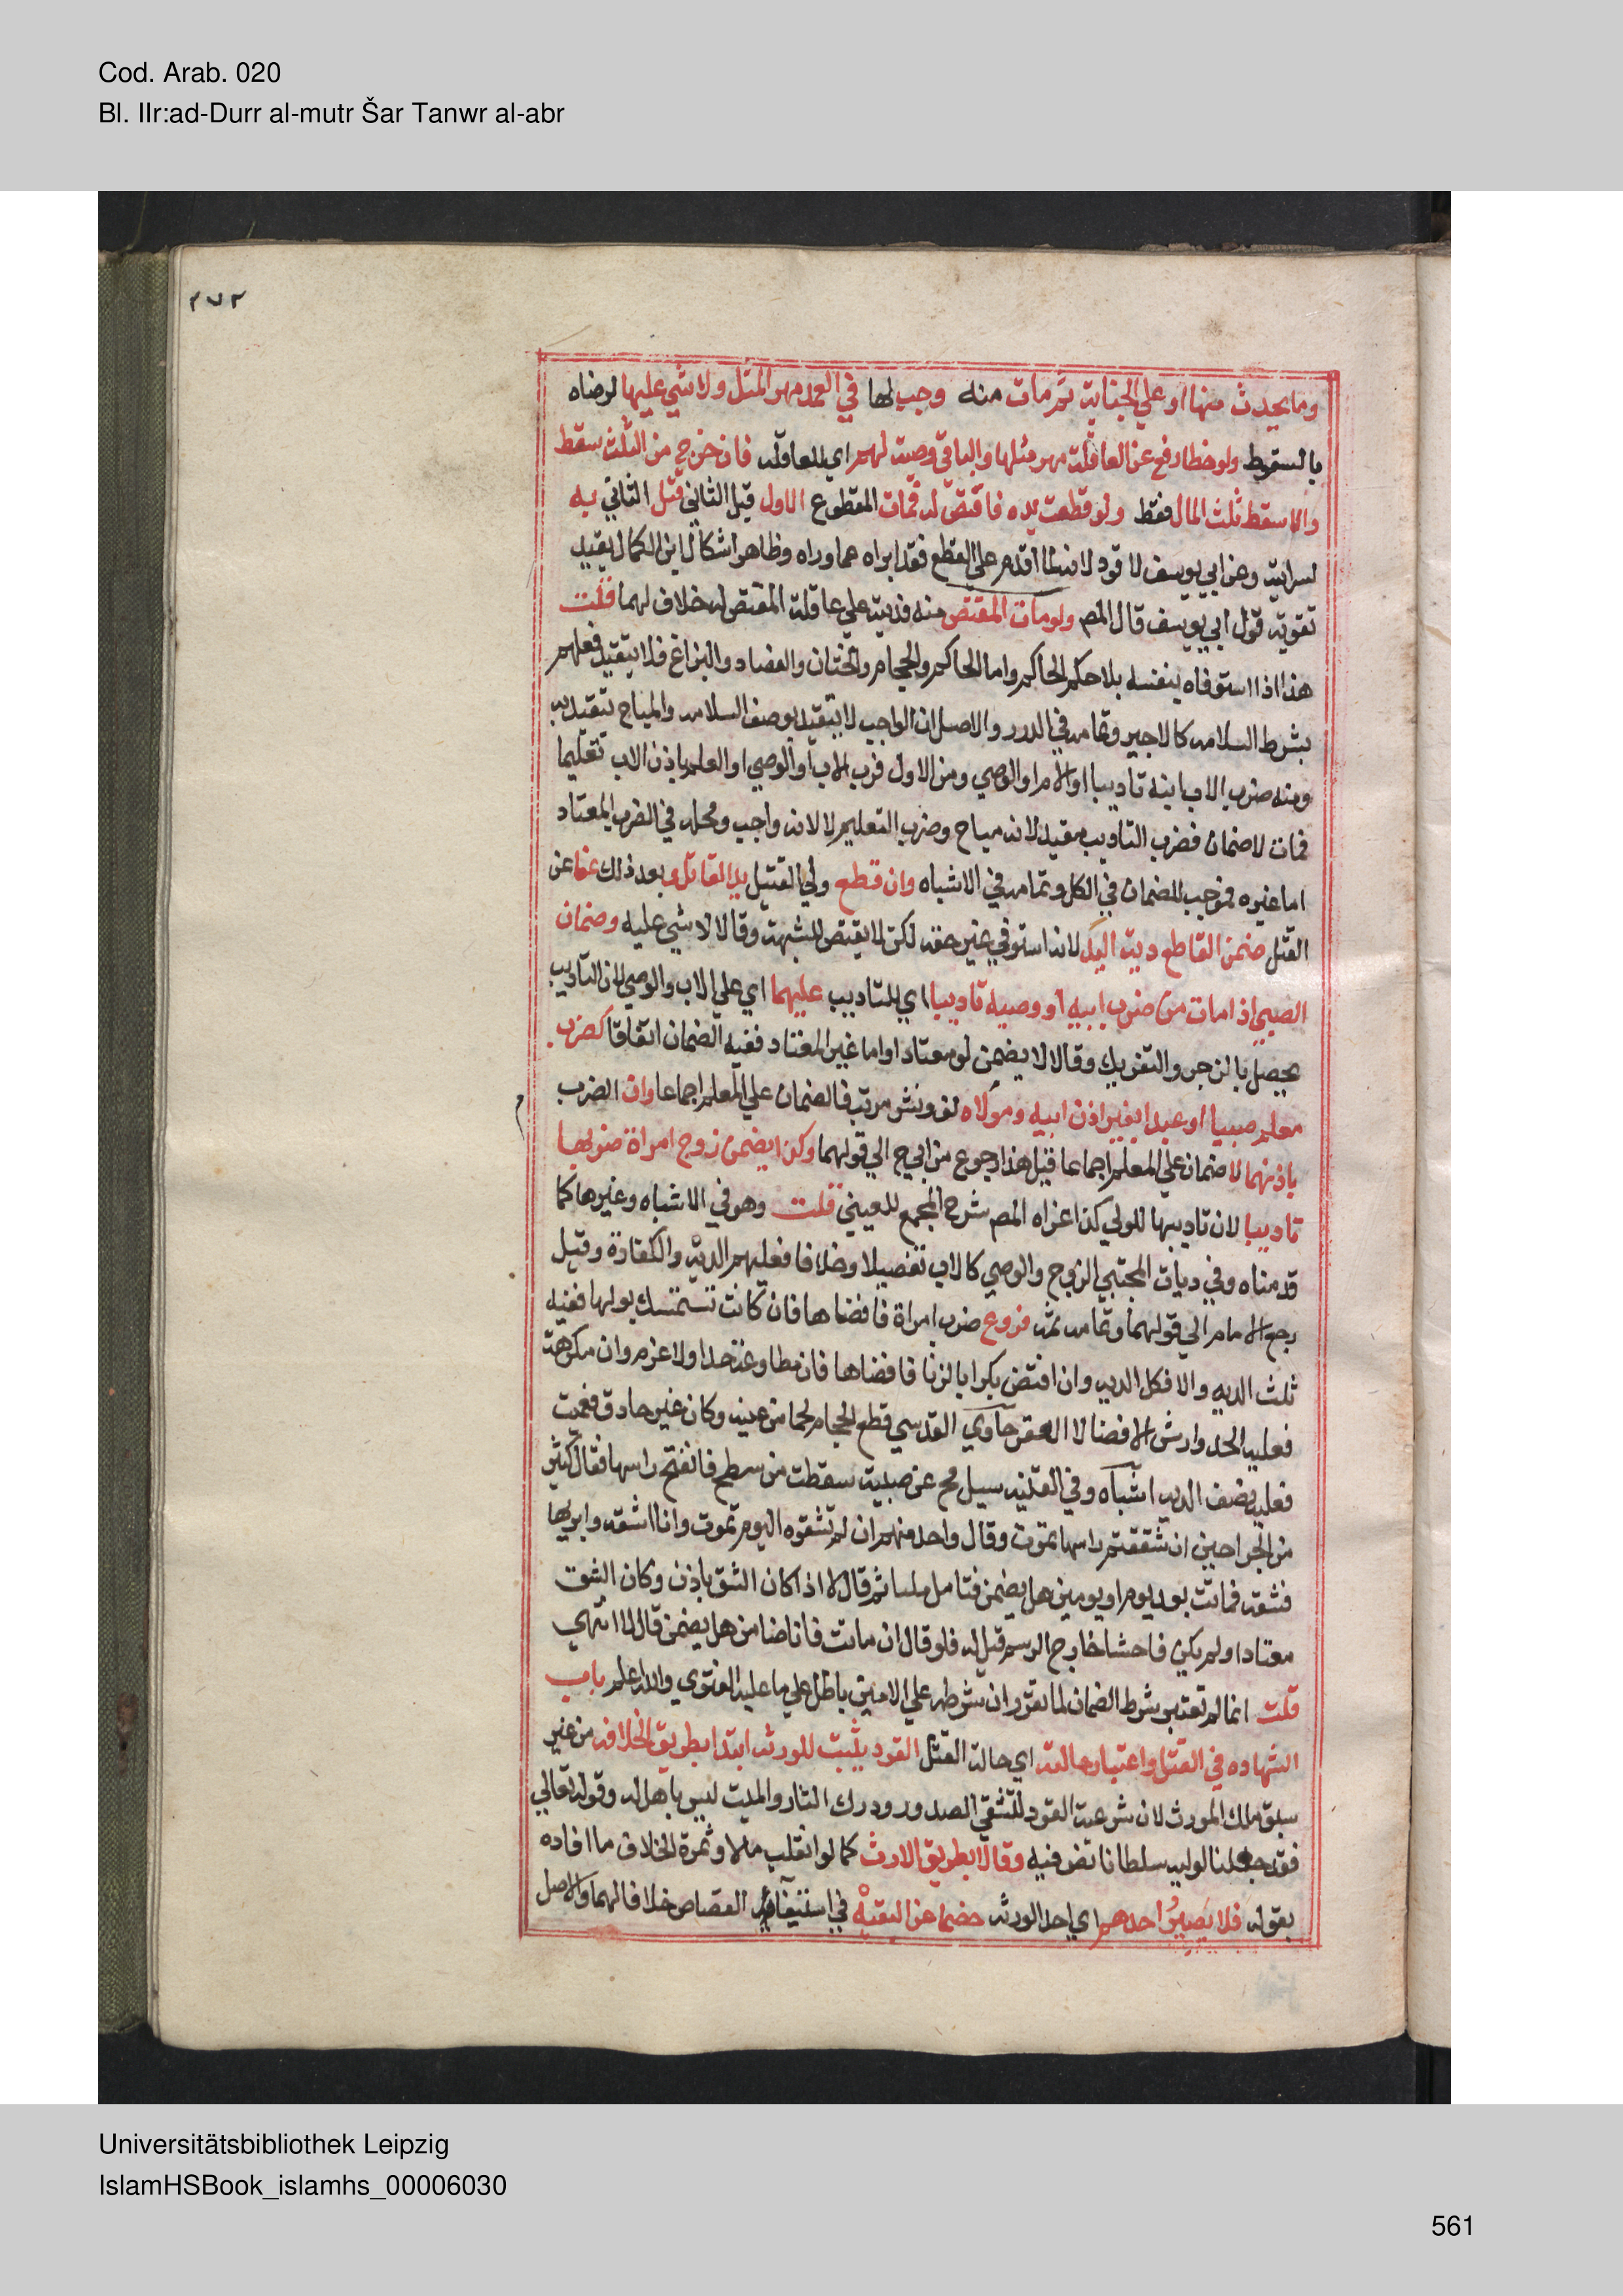 Cod. Arab. 020
Bl. IIr:ad-Durr al-mutr Šar Tanwr al-abr
٢٧٢
وما يحدث منها او علي الجناية ثم مات منه وجب لها في العمد مهر المثل ولا شي عليها لرضاه
بالسقوط ولو خطا رفع عن العاقلة مهر مثلها والباقي وصية لهم اي للعاقلة فان خرج من الثلث سقط
والا سقط ثلث المال فقط ولو قطعت يده فاقتص له فمات المقطوع الاول قبل الثاني قتل الثاني به
لسرايته وعن ابي يوسف لا قود لانه لما اقدم علي القطع فقد ابراه عما وراه وظاهر اشكال ابن الكمال يفيد
تقوية قول ابي يوسف قال المص ولو مات المقتص منه فديته علي عاقلة المقتص له خلاف لهما قلت
هذا اذا استوفاه بنفسه بلا حكم الحاكم واما الحاكم والحجام والختان والفصاد والبزاغ فلا يتقيد فعلهم
بشرط السلامه كالاجير وتمامه في الدرر والاصل ان الواجب لا يتقيد بوصف السلامه والمباح يتقيد به
ومنه ضرب الاب ابنه تاديبا او الام او الوصي ومن الاول ضرب الاب او الوصي او العلم باذن الاب تعليما
فمات لا ضمان فضرب التاديب مقيد لانه مباح وضرب التعليم لا لانه واجب ومحله في الضرب المعتاد
اما غيره فموجب للضمان في الكل وتمامه في الاشباه وان قطع ولي القتيل يد القاتل وبعد ذلك عفا عن
القتل ضمن القاطع دية اليد لانه استوفي غير حقه لكن لا يقتص للشبهة وقالا لا شي عليه وضمان
الصبي اذ امات من ضرب ابيه او وصيه تاديبا اي للتاديب عليهما اي علي الاب والوصي لان التاديب
يحصل بالزجر والتعريك وقالا لا يضمن لو معتادا واما غير المعتاد ففيه الضمان اتفاقا كضرب
معلم صبيا او عبدا بغير اذن ابيه ومولاه لف ونشر مرتب فالضمان علي المعلم اجماعا وان الضرب
باذنهما لا ضمان علي المعلم اجماعا قيل هذا رجوع من ابي ح الي قولهما وكذا يضمن زوج امراة ضربها
تاديبا لان تاديبها للولي كذا عزاه المص شرح المجمع للعيني قلت وهو في الاشباه وغيرها كما
قدمناه وفي ديات المجتبي الزوج والوصي كالاب تفصيلا وخلافا فعليهم الدية والكفارة وقيل
رجع الامام الي قولهما وتمامه ثمه فروع ضرب امراة فافضاها فان كانت تستمسك بولها ففيه
ثلث الديه والا فكل الديه وان افتض بكرا بالزنا فافضاها فان مطاوعة حدا ولا غرم وان مكرهة
فعليه الحد وارش الافضا لا العقر حاوي القدسي قطع الحجام لحما من عينه وكان غير حاذق فعميت
فعليه نصف الديه اشباه وفي القنيه سيل مح عن صبية سقطت من سطح فانفتح راسها فقال كثير
من الجراحين ان شققتم راسها تموت وقال واحد منهم ان لم تشقوه اليوم تموت وانا اشقه وابريها
فشقه فماتت بعد يوم او يومين هل يضمن فتامل مليا ثم قال لا اذا كان الشق باذن وكان الشق
معتادا ولم يكن فاحشا خارج الرسم قيل له فلو قال ان ماتت فانا ضامن هل يضمن قال لا انتهي
قلت انما لم تعتبر شرط الضمان لما تقرر ان شرطه علي الامين باطل علي ما عليه الفتوي والله اعلم باب
الشهاده في القتل واعتبار حالته اي حالة القتل القود يثبت للورثه ابتدا بطريق الخلافه من غير
سبق ملك المورث لان شرعية القود للتشفي الصدور ودرك الثار والميت ليس باهل له وقوله تعالي
فقد جعلنا لوليه سلطانا نص فيه وقالا بطريق الارث كما لو انقلب مالا وثمرة الخلاف ما افاده
بقوله فلا يصير احدهم اي احد الورثه خصما عن البقية في استيفاء القصاص خلافا لهما والاصل
Universitätsbibliothek Leipzig
IslamHSBook_islamhs_00006030
561